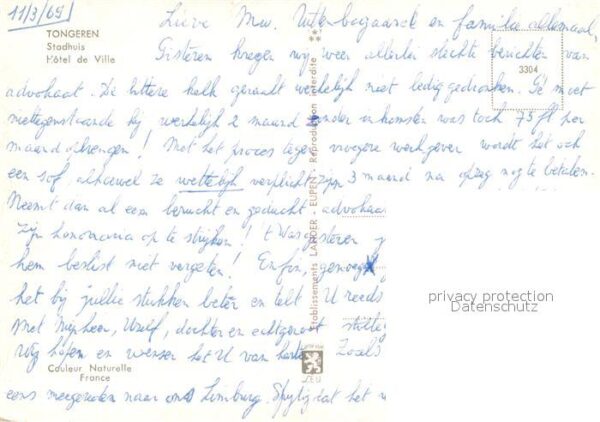 11/3/69
TONGEREN
Stadhuis
Hôtel de Ville
3304
Lieve Mw. Uittenbogaarde en familie allemaal,
Gisteren kregen wij weer allerlei slechte berichten van
advocaat. De bittere kelk geraakt werkelijk niet ledig gedronken. Ge moet
niettegenstaande hij werkelijk 2 maand zonder inkomsten was toch 75 fl per
maand opbrengen! Met het proces tegen vroegere werkgever wordt het ook
een sof, alhoewel ze wettelijk verplicht zijn 3 maand na opzeg nog te betalen.
Neemt dan al een berucht en geducht advocaa
zijn honoraria op te strijken! 't Was gisteren
hem beslist niet vergeten! Enfin, genoeg
het bij jullie stukken beter en telt U reeds
Met Mijnheer, Uzelf, dochter en echtgenoot
Wij hopen en wensen het U van harte Zoals
eens meegereden naar ons Limburg. Spijtig dat het
Etablissements LANDER - EUPEN Reproduction interdite
privacy protection
Datenschutz
Couleur Naturelle
France